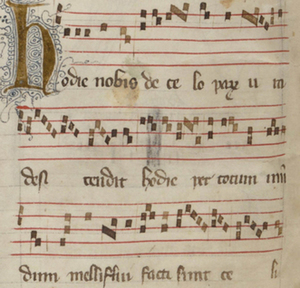 Hodie nobis de ce lo pax u in
des cendit hodie per totum mu
dum melliflui facti sunt ce li